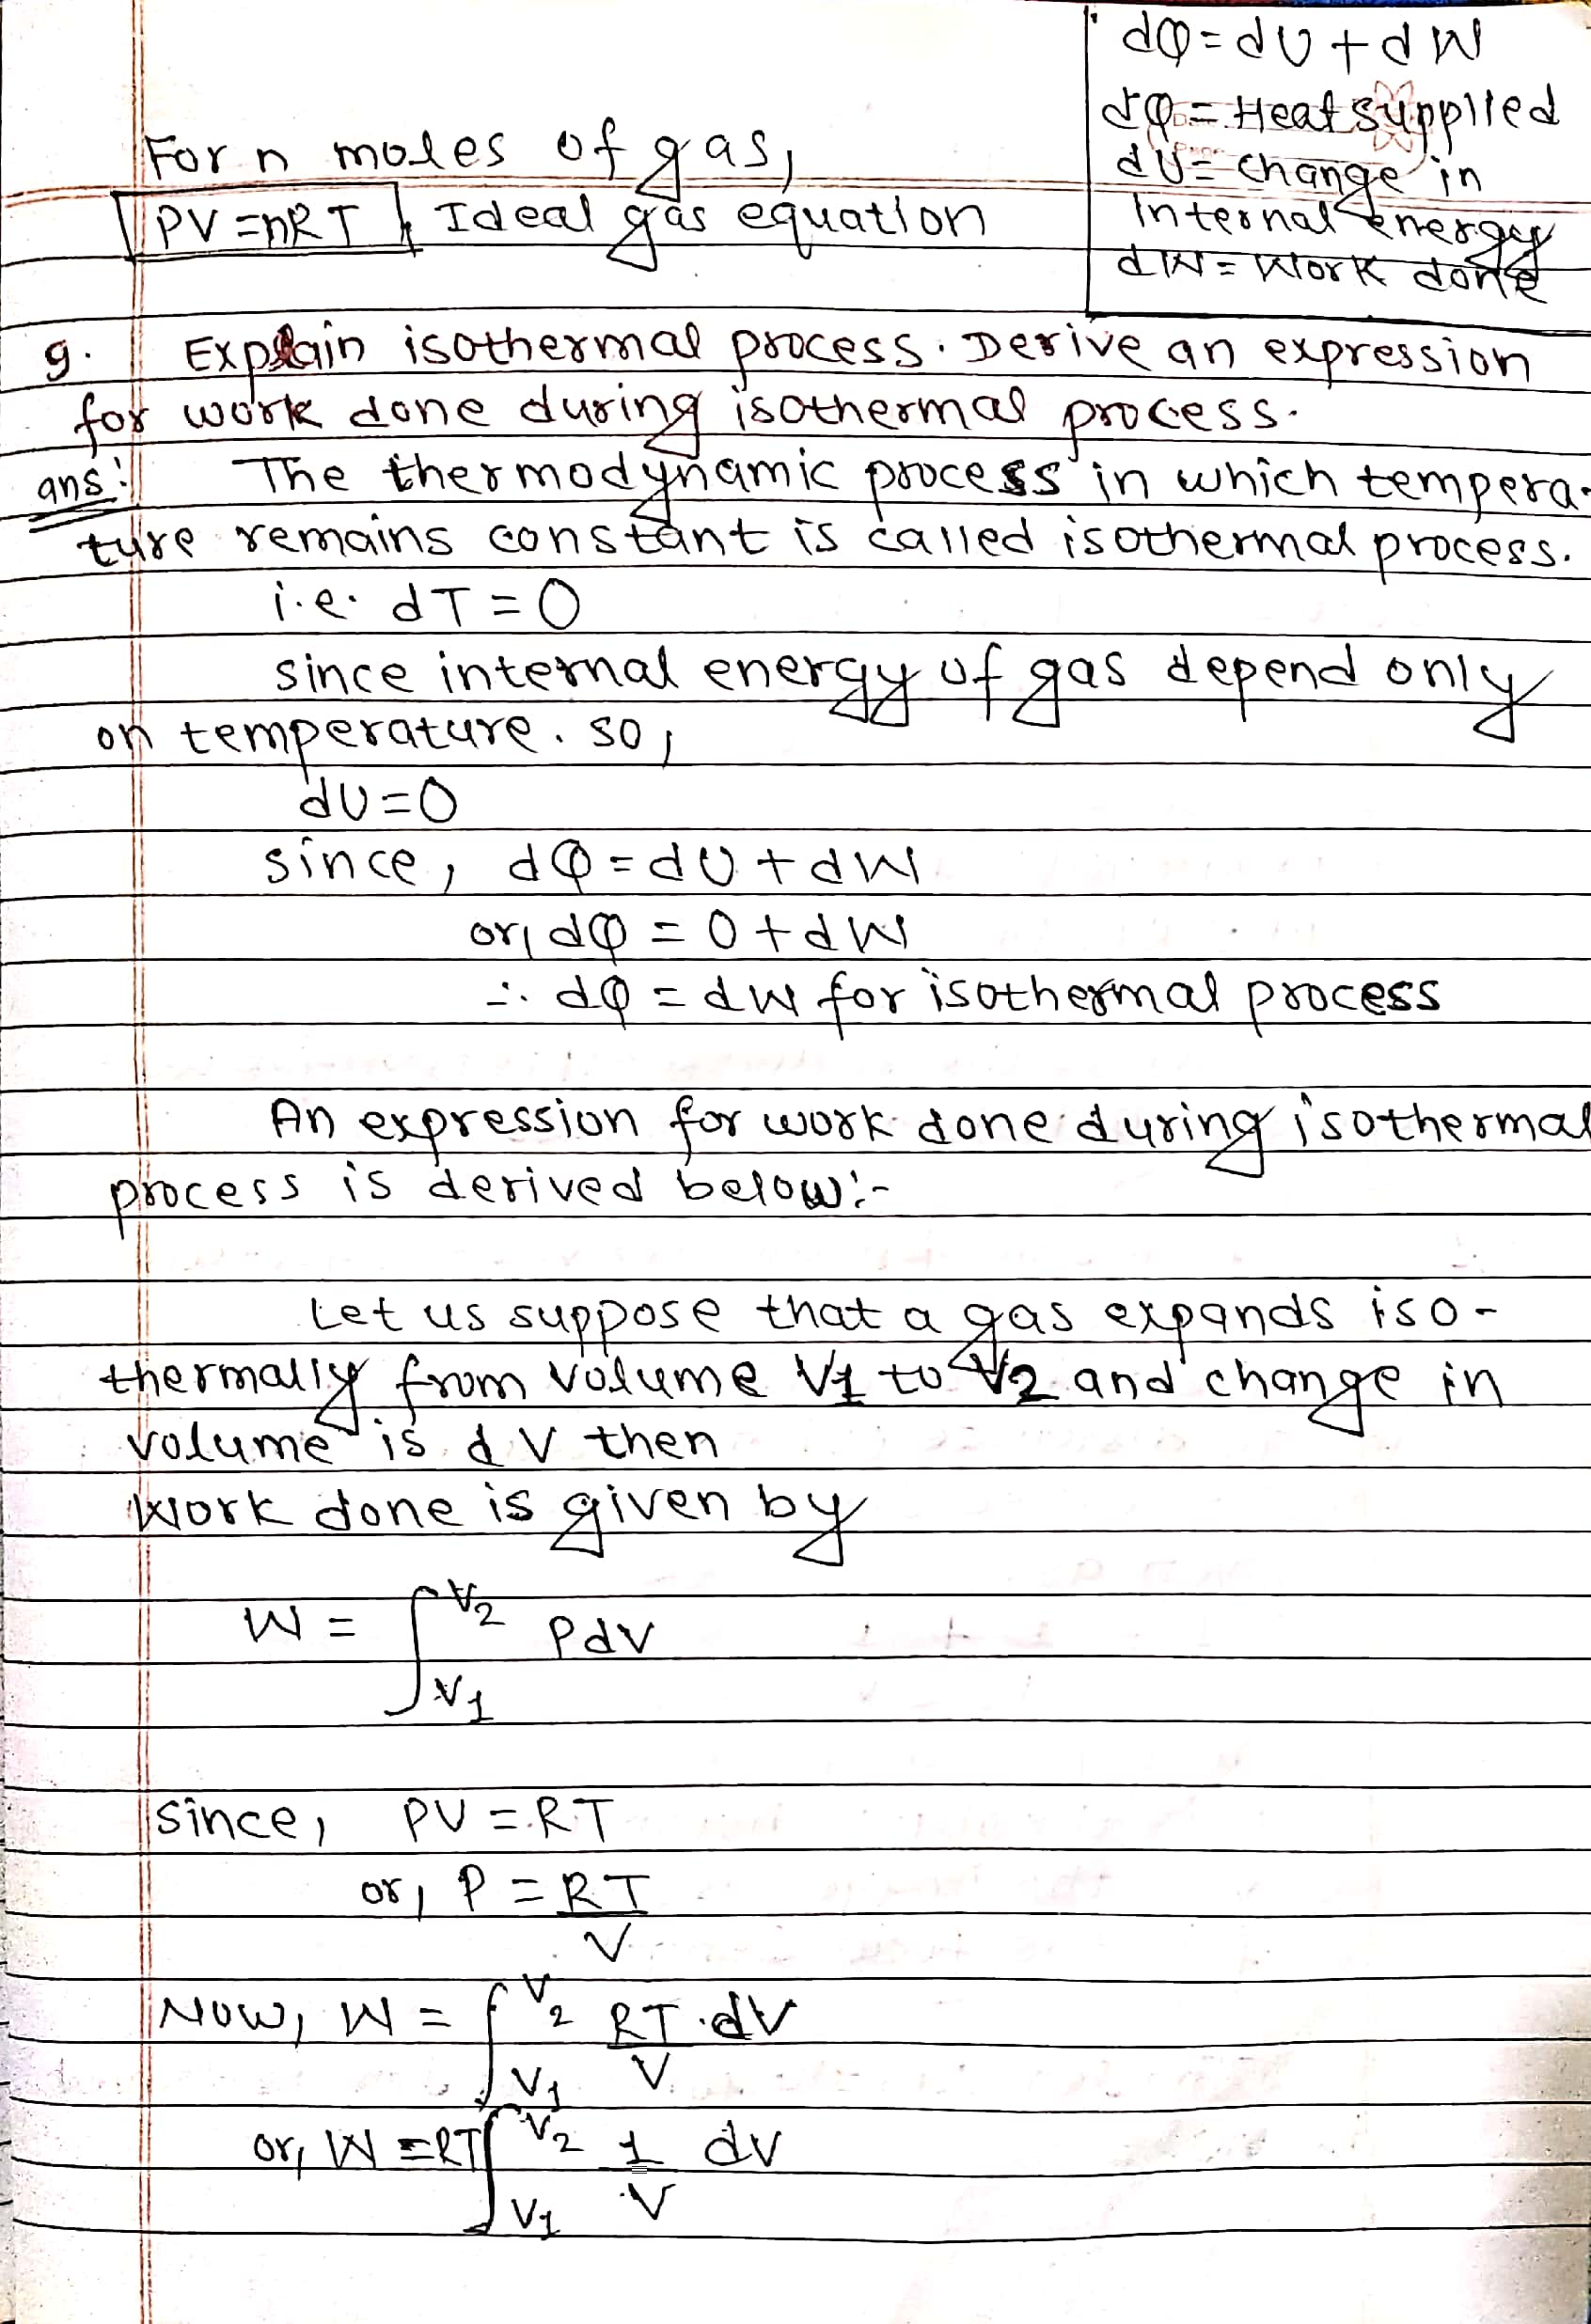 dQ = dU + dW
dQ = Heat supplied
dU = change in
Internal energy
dW = Work done
For n moles of gas,
PV = nRT , Ideal gas equation
9. Explain isothermal process. Derive an expression
for work done during isothermal process.
ans: The thermodynamic process in which tempera-
ture remains constant is called isothermal process.
i.e. dT = 0
since internal energy of gas depend only
on temperature. so,
dU = 0
since, dQ = dU + dW
or, dQ = 0 + dW
∴ dQ = dW for isothermal process
An expression for work done during isothermal
process is derived below:-
Let us suppose that a gas expands iso-
thermally from volume V1 to V2 and change in
volume is dV then
Work done is given by
W = ∫_{V1}^{V2} PdV
since, PV = RT
or, P = RT/V
Now, W = ∫_{V1}^{V2} RT/V . dV
or, W = RT ∫_{V1}^{V2} 1/V dV